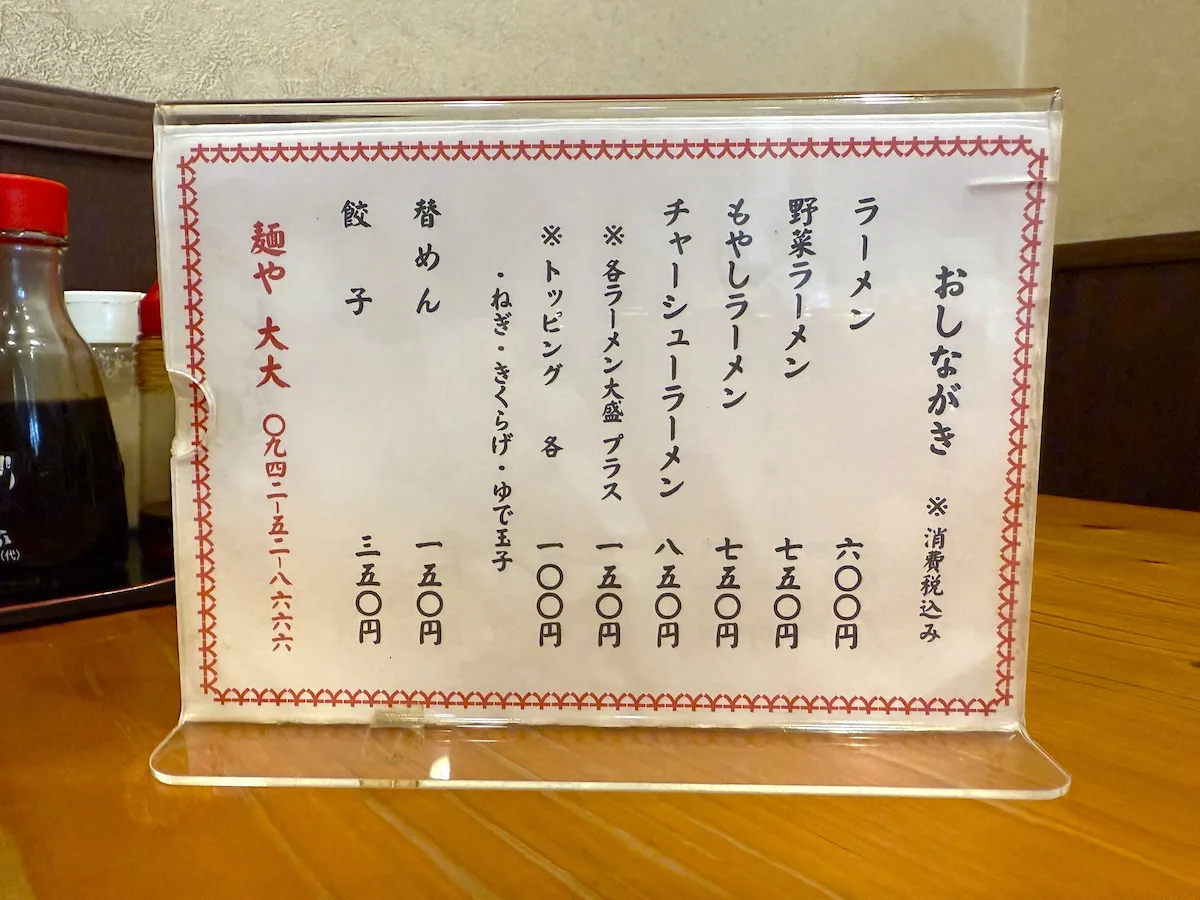 おしながき ※消費税込み
ラーメン 六〇〇円
野菜ラーメン 七五〇円
もやしラーメン 七五〇円
チャーシューラーメン 八五〇円
※各ラーメン大盛 プラス 一五〇円
※トッピング 各 一〇〇円
・ねぎ・きくらげ・ゆで玉子
替めん 一五〇円
餃子 三五〇円
麺や 大大 〇九四二ー五二ー八六六六
(代)